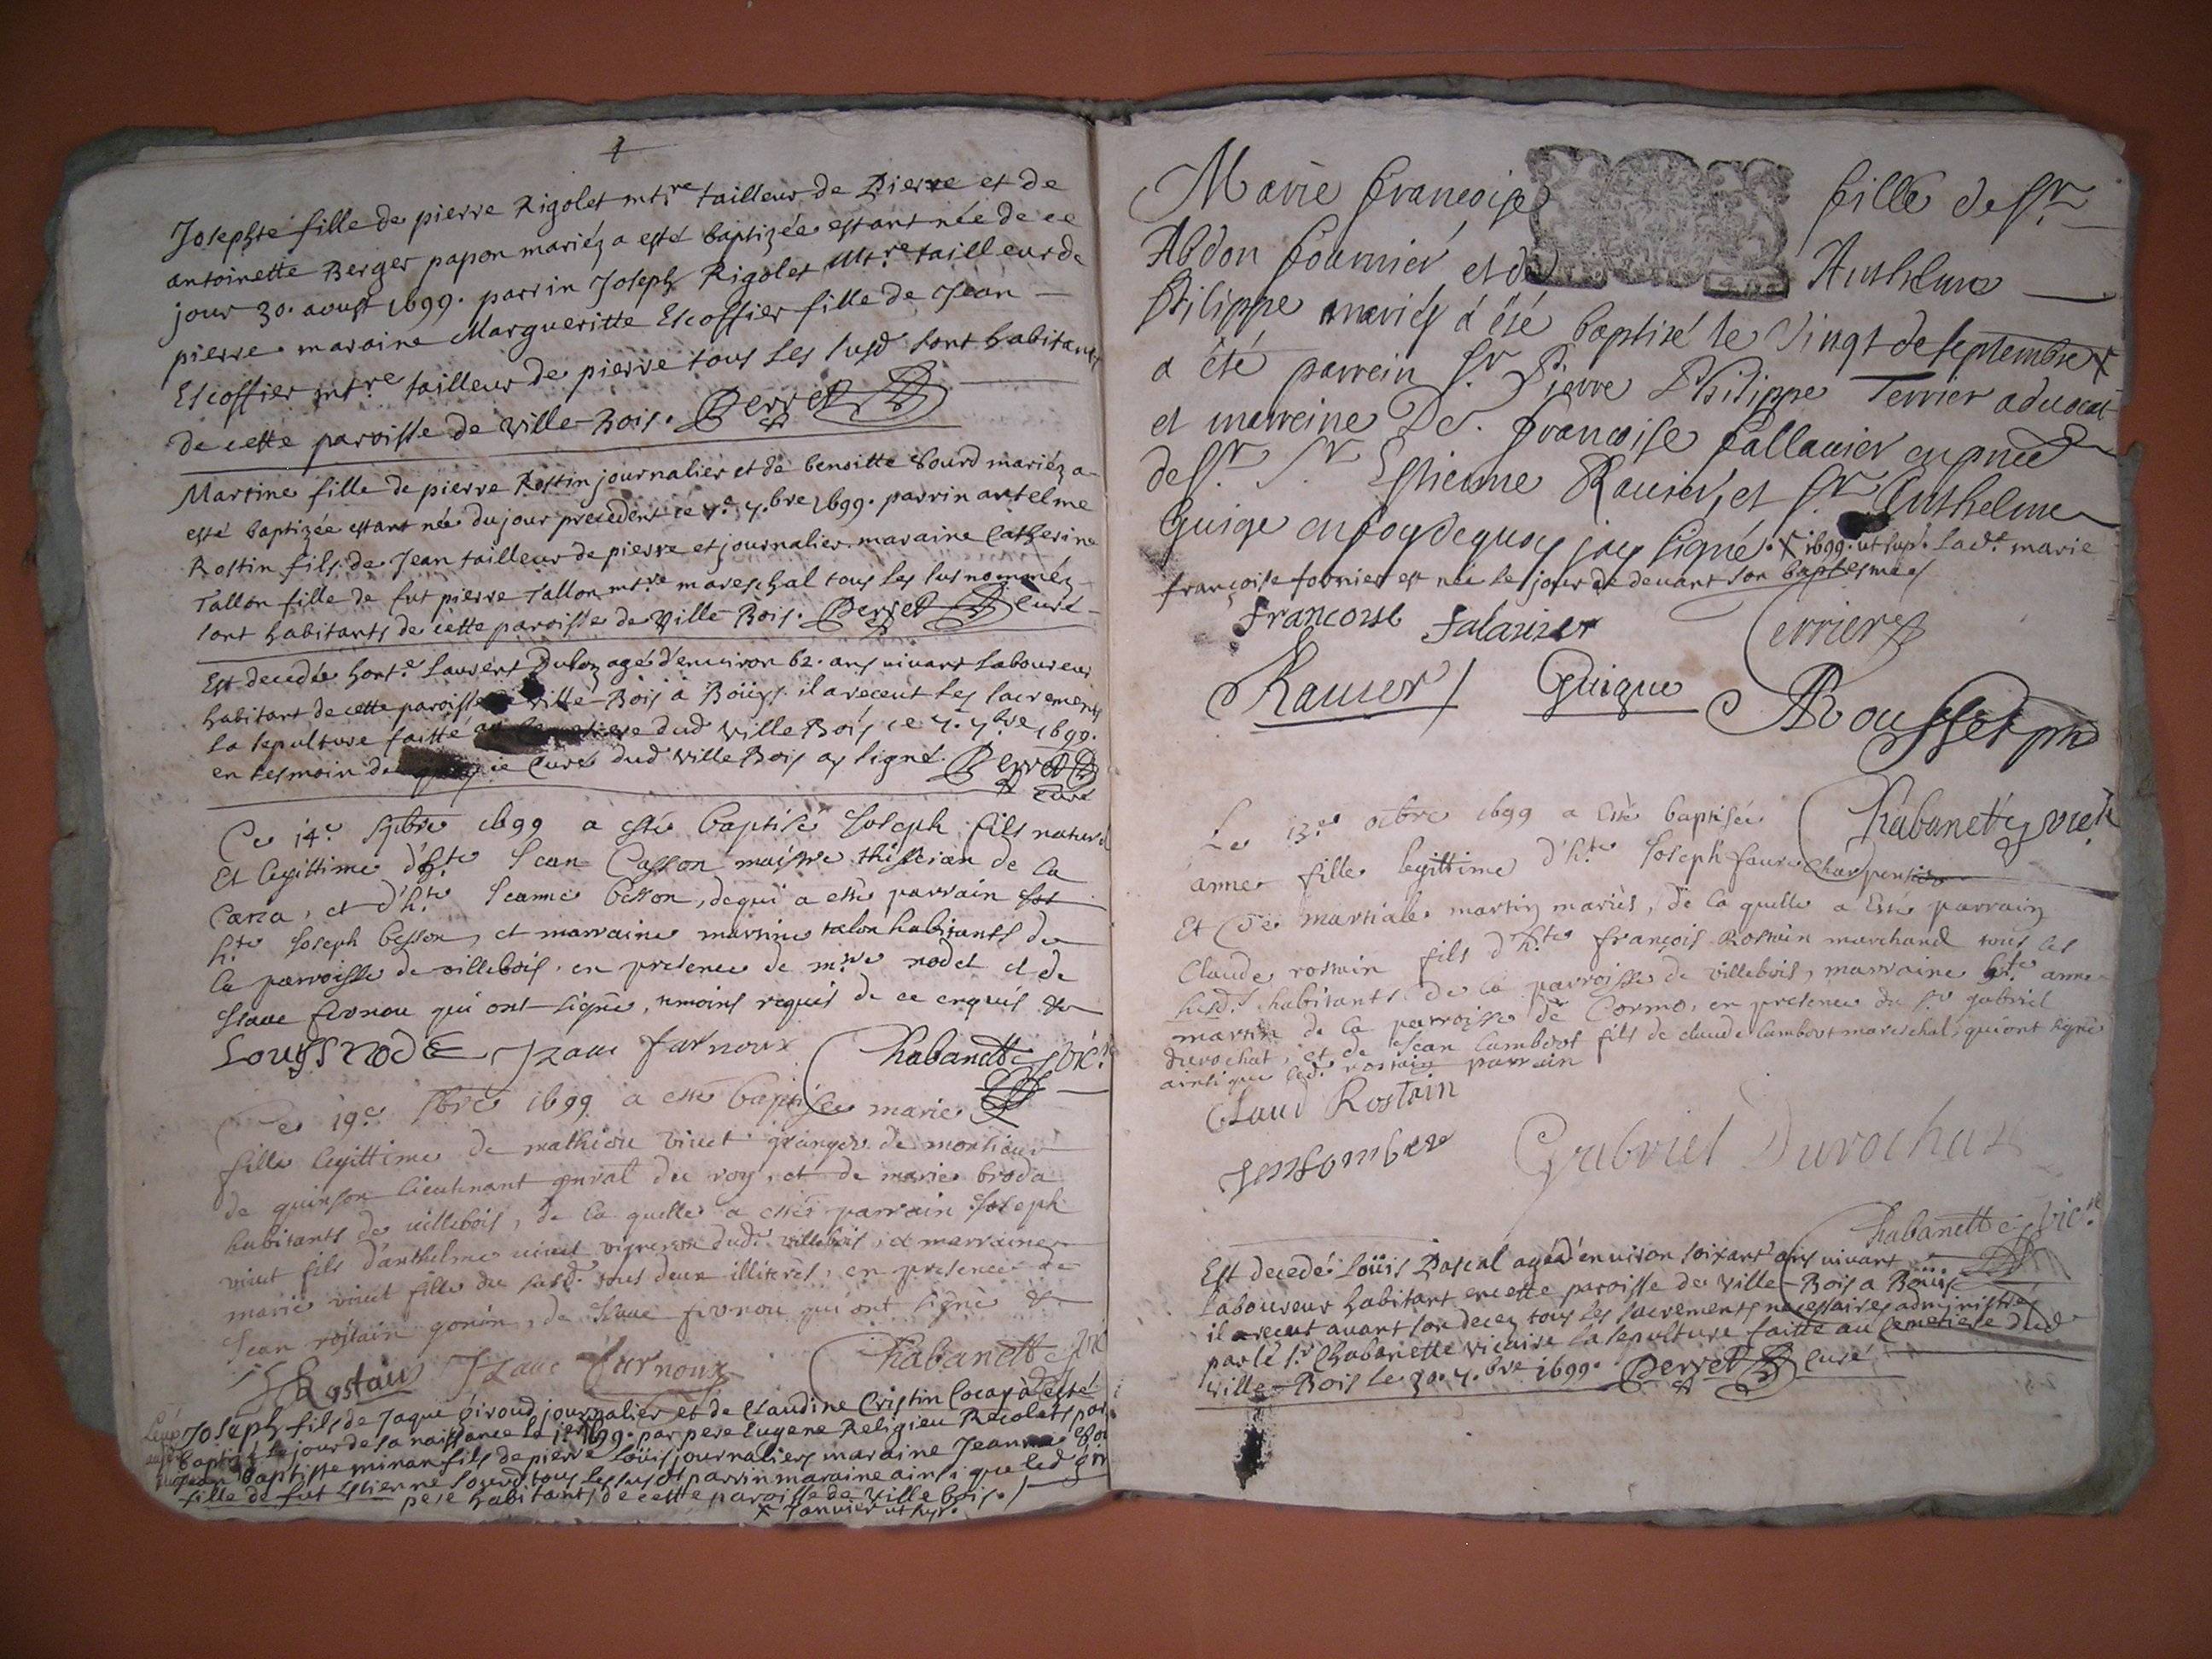 Josephte fille de pierre Rigolet mtre tailleur de Pierre et de
antoinette Berger papon mariéz a esté baptizée estant née de ce
jour 30. aoust 1699. parrin Joseph Rigolet Mtre tailleur de
pierre maraine Margueritte Escoffier fille de Jean
Escoffier mtre tailleur de pierre tous les susd sont habitants
de cette paroisse de Ville-Bois. Perret
Martine fille de pierre Rostin journalier et de benoitte Sourd mariéz a
esté baptizée estant née du jour precedent ce 7.bre 1699. parrin antelme
Rostin fils de Jean tailleur de pierre et journalier maraine Catherine
Tallon fille de fut pierre Tallon mtre mareschal tous les susnomméz
sont habitants de cette paroisse de Ville-Bois. Perret Curé
Est decedée hont.e Laurent agé d'environ 62. ans vivant laboureur
habitant de cette paroisse de Ville-Bois à Boüys. il a receut les sacrements
la sepulture faitte dud Ville Bois ce 7. 7bre 1699.
en tesmoin de ie Curé dud Ville Bois ay signé. Perret
Curé
Ce 14e 7bre 1699 a esté baptisé Joseph fils naturel
Et legittime d'h.te Jean Casson maistre thisseran de la
Carra, et d'h.te Jeanne besson, de qui a esté parrain
h.te Joseph besson, et marraine martine talon habitants de
la parroisse de villebois. en presence de mtre nodet et de
Isaac furnou qui ont signé, temoins requis de ce enquis &
Louys Node Izaac furnoux Chabanette vic.
Ce 19e 7bre 1699 a esté baptisée marie
fille legittime de mathieu vinet granger de monsieur
de quinson lieutenant gnral du roy, et de marie broda
habitants de villebois, de la quelle a estés parrain Joseph
vinet fils d'anthelme vinet vigneron dudt villebois, et marraine
marie vinet fille du susd. tous deux illiterés, en presence de
Jean rostain gonin, de Isaac furnou qui ont signé &
Rostain Izaac furnoux Chabanette vic
Joseph fils de Jaque giroud journalier et de Claudine Cristin Cocaz à esté
baptisé le jour de sa naissance le 1er 1699. par pere Eugene Religieu Recolet par
Jean baptiste minan fils de pierre Loüis journaliers maraine Jeanne
fille de fut Estienne sourd tous les susd parrin maraine ainsi que led
pere habitants de cette paroisse de Ville bois.
x Janvier ut sup.
Marie francoise fille de Sr
Abdon fournier et de Anthelme
Philippe mariés a été baptisé le vingt de septembre x
a été parrein Sr Pierre Philippe Terrier aduocat
et marreine De. francoise fallauier en pnce
de Sr Estienne Rauier, et Sr Anthelme
Guige en foy de quoy jay signé. x 1699. ut sup. lad.e marie
françoise fornier est née le jour de deuant son baptesme
francoise falauier Terrier
Rauier Guigue Rousset
Le 13.e 1699 a esté baptisée Chabanette vic.
anne fille legittime d'h.te Joseph faure Charpentier
Et De martiale martin mariés, de la quelle a esté parrain
Claude rostain fils d'h.te françois Rostain marchand tous les
susd. habitants de la parroisse de villebois, marraine h.te anne
martin de la parroisse de Cormo, en presence du sr gabriel
durochat, et de Jean Lambert fils de claude Lambert mareschal, qui ont signé
ainsi que led. rostain parrain
Claud Rostain
Gabriel Durochat
Chabanette vic.
Est decedé Loüis Pascal agé d'environ soixant ans vivant
laboureur habitant en cette paroisse de Ville-Bois a Boüis
il a receut auant son decez tous les sacrements necessaires administrés
par le sr Chabanette vicaire la sepulture faitte au Cemetiere dud
Ville-Bois le 30. 7.bre 1699. Perret Curé